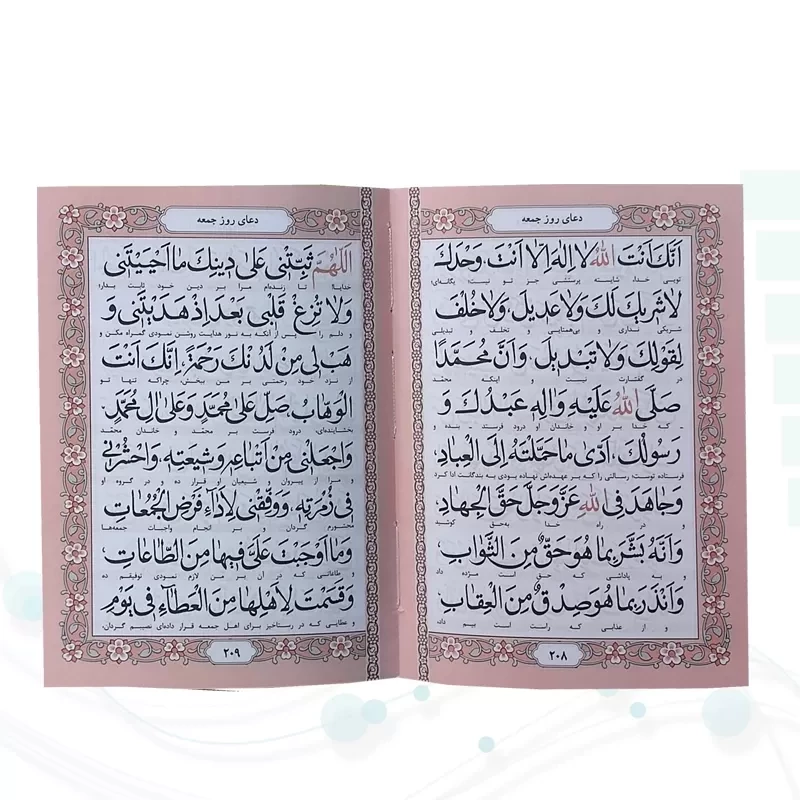 دعای روز جمعه
اَنَّكَ اَنْتَ اللّٰهُ لا اِلٰهَ اِلّا اَنْتَ وَحْدَكَ
تویی خدا، شایسته پرستشی جز تو نیست؛ یگانه‌ای؛
لا شَریكَ لَكَ وَلا عَدیلَ، وَلا خُلْفَ
شریکی نداری و بی‌همتایی و تخلف و تبدیلی
لِقَوْلِكَ وَلا تَبْدیلَ، وَاَنَّ مُحَمَّدًا
در گفتارت نیست و اینکه محمّد
صَلَّی اللّٰهُ عَلَیْهِ وَالِهِ عَبْدُكَ وَ
- که خدا بر او و خاندان او درود فرستد - بنده و
رَسُولُكَ، اَدّیٰ ما حَمَّلْتَهُ اِلَی الْعِبادِ،
فرستاده توست؛ رسالتی را که بر عهده‌اش نهاده بودی به بندگانت ادا کرد
وَجاهَدَ فِی اللّٰهِ عَزَّوَجَلَّ حَقَّ الْجِهادِ،
و در راه خدا به‌حق کوشید
وَاَنَّهُ بَشَّرَ بِما هُوَ حَقٌّ مِنَ الثَّوابِ
و به پاداشی که حق است مژده داد
وَاَنْذَرَ بِما هُوَ صِدْقٌ مِنَ الْعِقابِ
و از عذابی که راست است بیم داد؛
۲۰۸
دعای روز جمعه
اَللّٰهُمَّ ثَبِّتْنی عَلیٰ دینِكَ ما اَحْیَیْتَنی
خدایا تا زنده‌ام مرا بر دین خود ثابت بدار؛
وَلا تُزِغْ قَلْبی بَعْدَ اِذْ هَدَیْتَنی وَ
و دلم را پس از آنکه به نور هدایت روشن نمودی گمراه مکن و
هَبْ لی مِنْ لَدُنْكَ رَحْمَةً، اِنَّكَ اَنْتَ
از نزد خود رحمتی بر من ببخش، چراکه تنها تو
الْوَهّابُ صَلِّ عَلیٰ مُحَمَّدٍ وَعَلیٰ الِ مُحَمَّدٍ،
بخشاینده‌ای، درود فرست بر محمّد و خاندان محمّد
وَاجْعَلْنی مِنْ اَتْباعِهِ وَشیعَتِهِ، وَاحْشُرْنی
و مرا از پیروان و شیعیان او قرار ده و در گروه او
فی زُمْرَتِهِ، وَوَفِّقْنی لِاَداءِ فَرْضِ الْجُمُعاتِ
محشورم گردان و بر انجام واجبات جمعه‌ها
وَما اَوْجَبْتَ عَلَیَّ فیها مِنَ الطّاعاتِ
و طاعاتی که در آن بر من لازم نمودی توفیقم ده
وَقَسَمْتَ لِاَهْلِها مِنَ الْعَطاءِ فی یَوْمِ
و عطایی که در رستاخیز برای اهل جمعه قرار داده‌ای نصیبم گردان،
۲۰۹